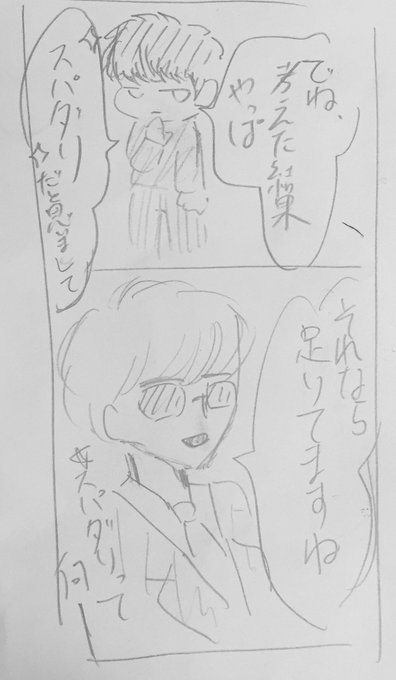 でね、
考えた結果
やっぱ
スパダリ
だと思いまして
それなら
足りてますね
スパダリって
何